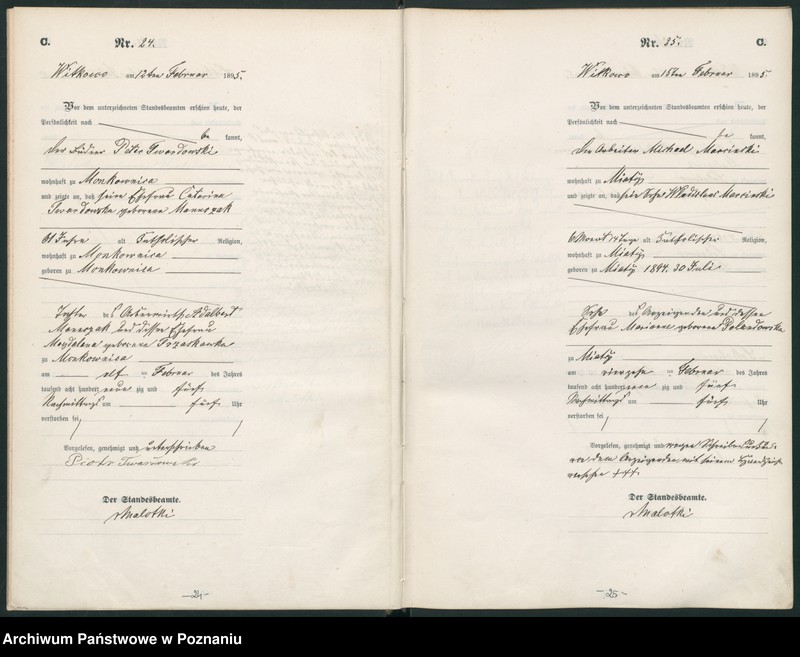 C. Nr. 24.
Witkowo am 12ten Februar 1895.
Vor dem unterzeichneten Standesbeamten erschien heute, der
Persönlichkeit nach
be kannt,
der Peter Twardowski
wohnhaft zu Monkownica
und zeigte an, daß seine Ehefrau Catarina
Twardowska geborene
61 Jahre alt katholischer Religion,
wohnhaft zu Monkownica
geboren zu Monkownica
Tochter des Adalbert
und dessen Ehefrau
Magdalena geborene
zu Monkownica
am elf ten Februar des Jahres
tausend acht hundert neun zig und fünf
Nachmittags um fünf Uhr
verstorben sei
Vorgelesen, genehmigt und unterschrieben
Piotr Twardowski
Der Standesbeamte.
Malotki
—24—
Nr. 25. C.
Witkowo am 15ten Februar 1895
Vor dem unterzeichneten Standesbeamten erschien heute, der
Persönlichkeit nach
be kannt,
der Arbeiter Michael Marcinski
wohnhaft zu Miaty
und zeigte an, daß sein Sohn Wladislaus Marcinski
6 Monat 14 Tage alt katholischer Religion,
wohnhaft zu Miaty
geboren zu Miaty 1894. 30 Juli
Sohn des Anzeigenden und dessen
Ehefrau Marianna geborene Polandowska
zu Miaty
am vierzehn ten Februar des Jahres
tausend acht hundert neun zig und fünf
Nachmittags um fünf Uhr
verstorben sei
Vorgelesen, genehmigt und wegen
von dem Anzeigenden mit seinem Handzeichen
versehen +++
Der Standesbeamte.
Malotki
—25—
Archiwum Państwowe w Poznaniu